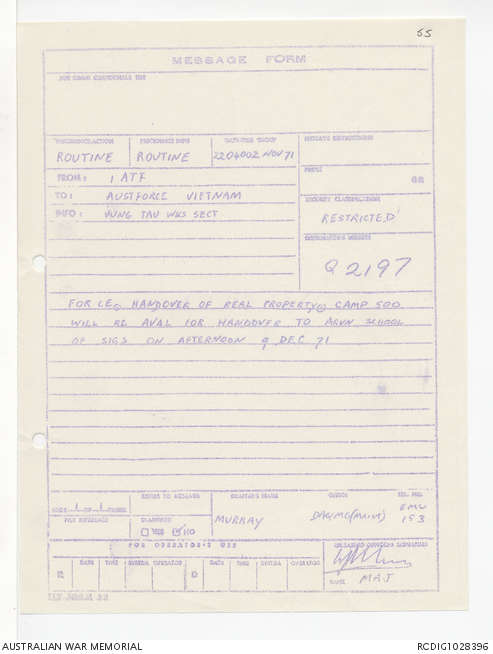 55
MESSAGE FORM
FOR COMM CENTRE/SIGS USE
PRECEDENCE-ACTION PRECEDENCE-INFO DATE-TIME GROUP MESSAGE INSTRUCTIONS
ROUTINE ROUTINE 220400Z NOV 71
FROM: 1 ATF PREFIX GR
TO: AUSTFORCE VIETNAM SECURITY CLASSIFICATION
INFO: VUNG TAU WKS SECT RESTRICTED
ORIGINATORS NUMBER
Q2197
FOR CE. HANDOVER OF REAL PROPERTY. CAMP 500
WILL BE AVAL FOR HANDOVER TO ARVN SCHOOL
OF SIGS ON AFTERNOON 9 DEC 71
PAGE 1 OF 1 PAGES REFERS TO MESSAGE DRAFTERS NAME OFFICE TEL NO.
FILE REFERENCE CLASSIFIED YES NO MURRAY DAQMG(MAINT) EMU 153
FOR OPERATOR'S USE RELEASING OFFICERS SIGNATURE
R DATE TIME SYSTEM OPERATOR D DATE TIME SYSTEM OPERATOR
NAME MAJ
AUSTRALIAN WAR MEMORIAL RCDIG1028396